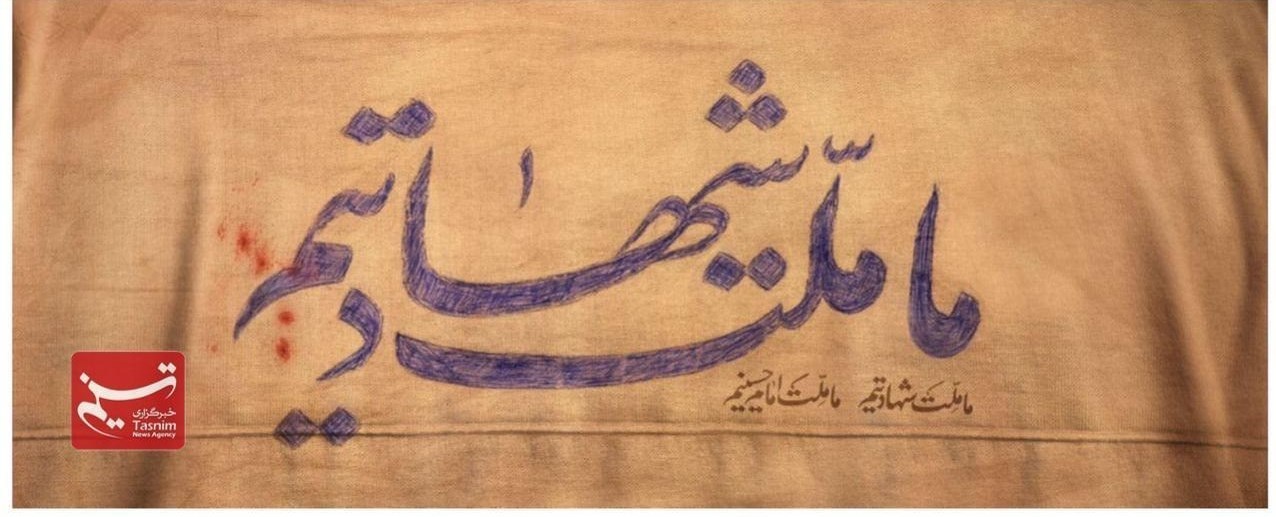 ما ملّت شهادتیم
ما ملّت شهادتیم ما ملّت امام حسینیم
تسنیم
خبرگزاری
Tasnim
News Agency